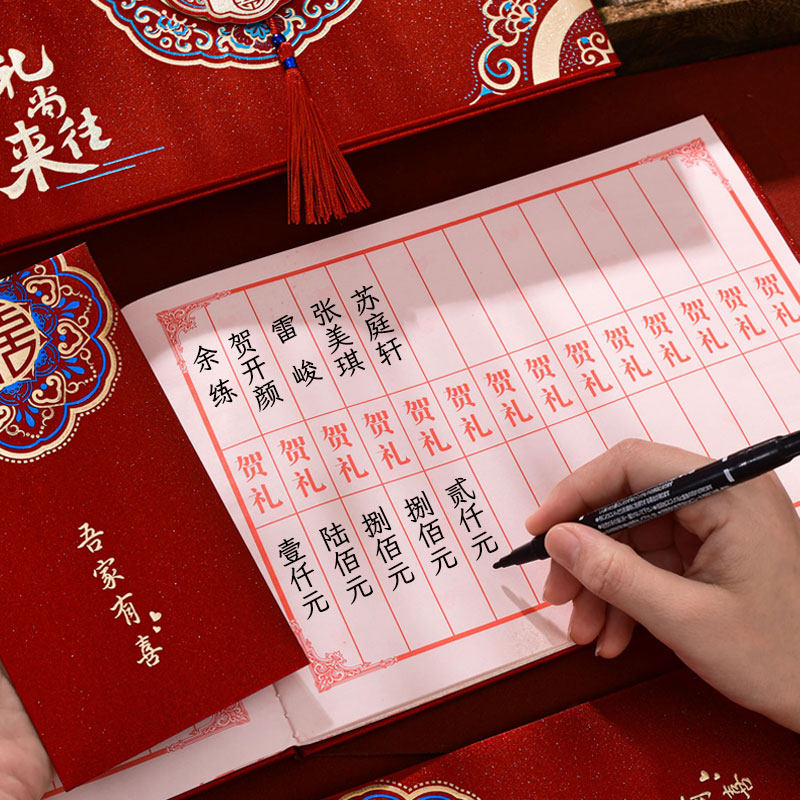 礼尚往来
吾家有喜
余练
贺开颜
雷峻
张美琪
苏庭轩
贺礼
贺礼
贺礼
贺礼
贺礼
贺礼
贺礼
贺礼
贺礼
贺礼
贺礼
贺礼
贺礼
贺礼
壹仟元
陆佰元
捌佰元
捌佰元
贰仟元